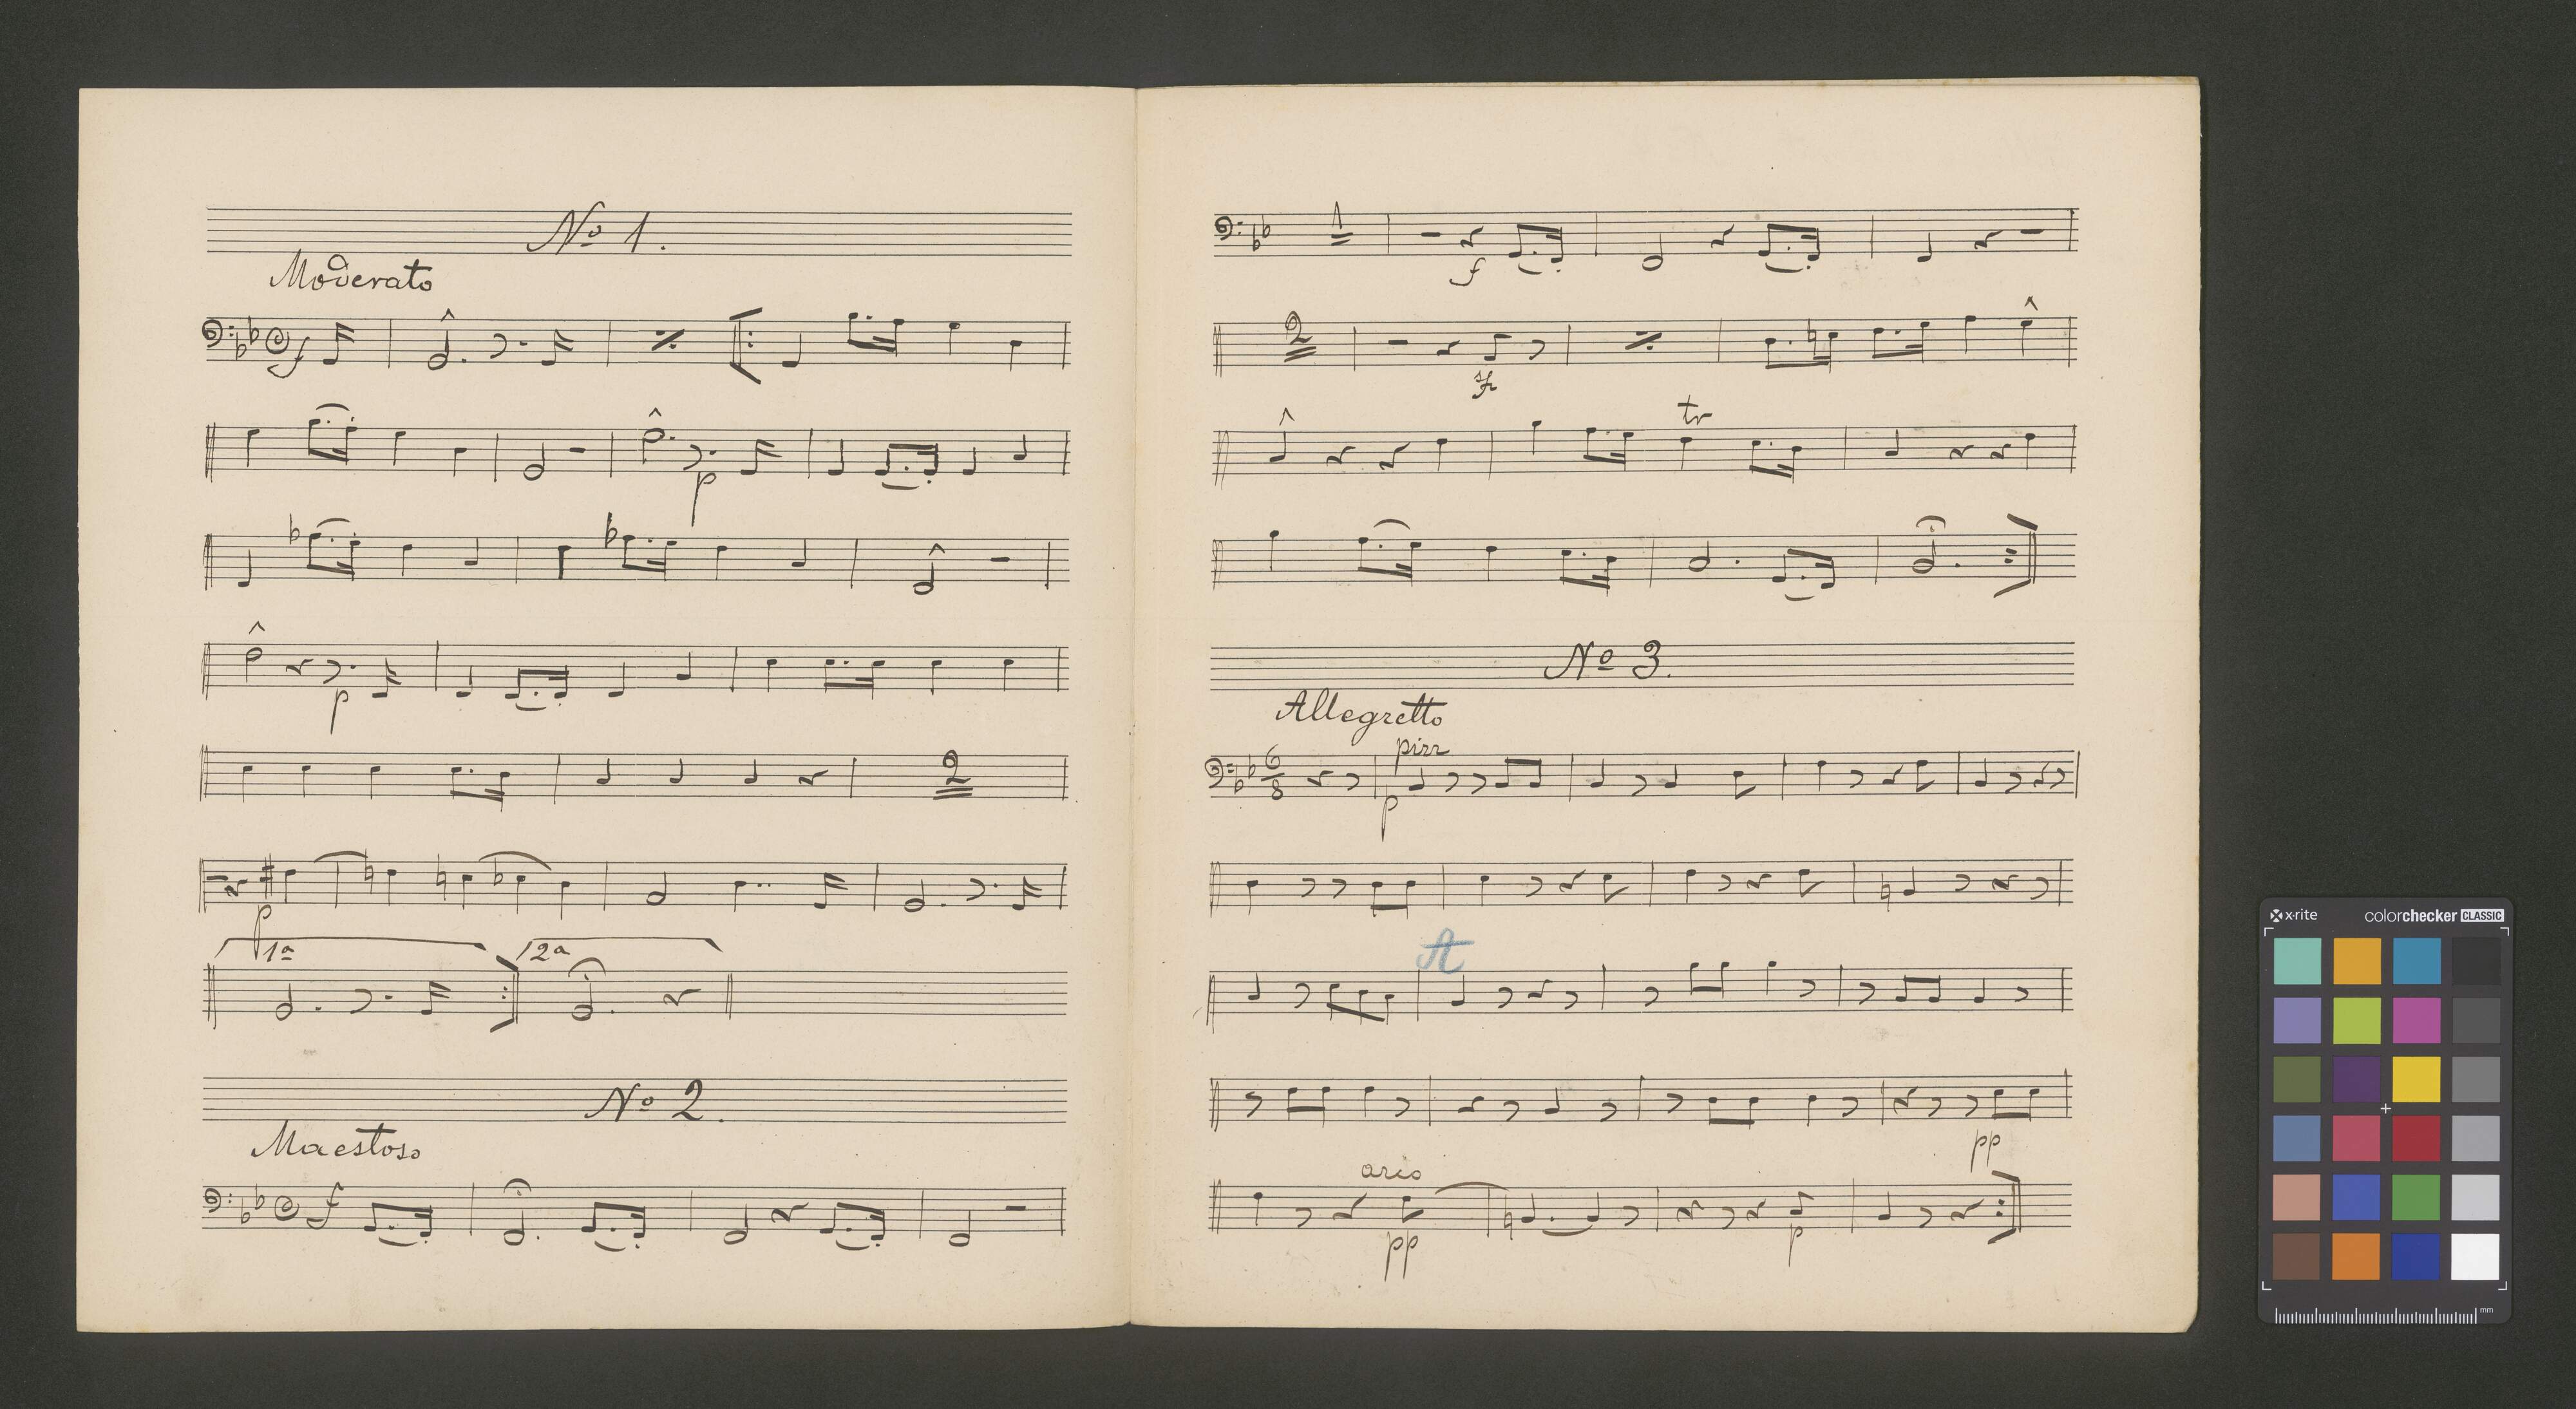 No 1.
Moderato
f
p
p
2
p
1a 2a
No 2.
Maestoso
f
1
f
2
tr
No 3.
Allegretto
pizz
6
8
p
A
pp
arco
pp
p
x·rite colorchecker CLASSIC
mm